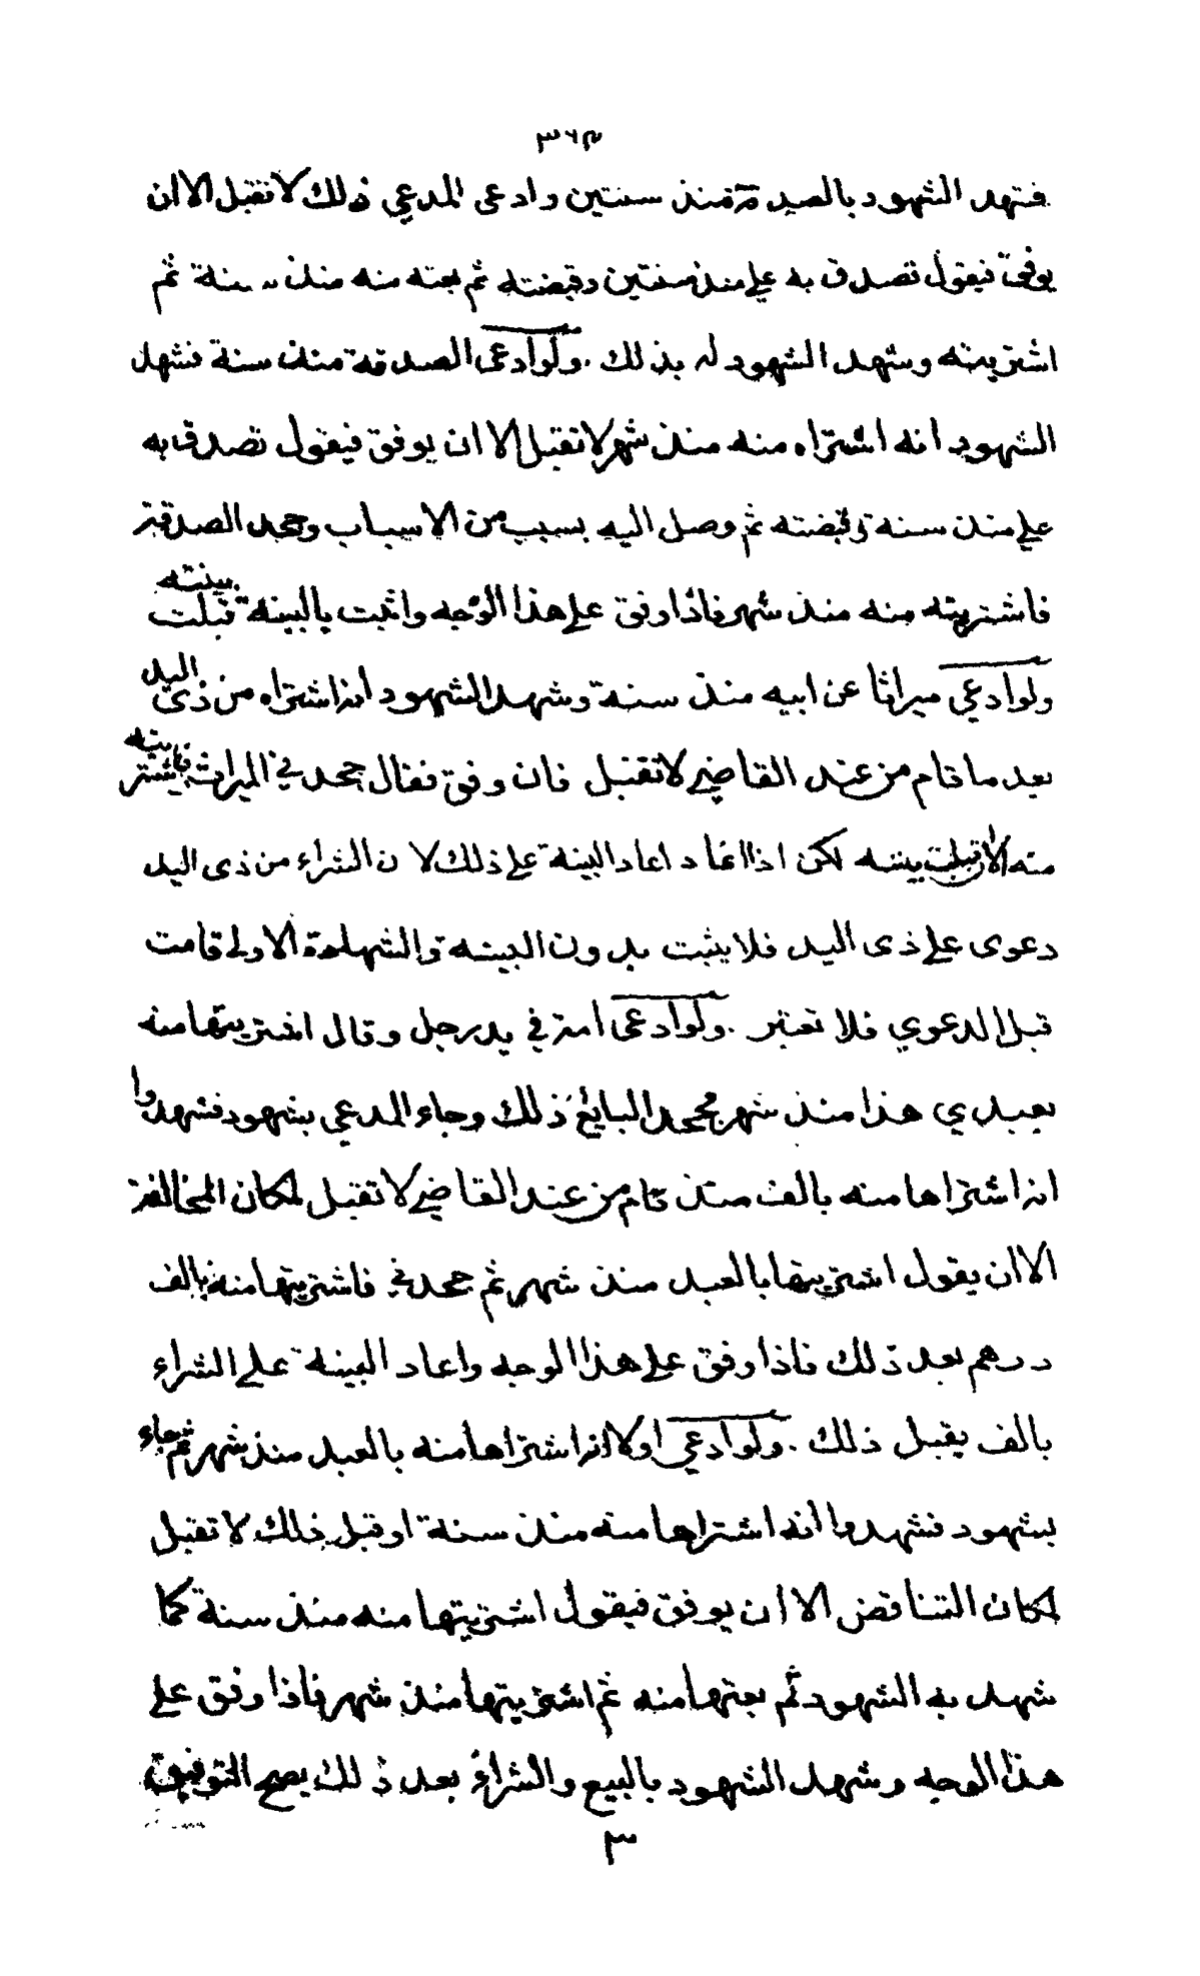 ٣٦٣
فتهد الشهود بالصدقة منذ سنتين وادعى المدعي ذلك لا تقبل الا ان
يوفق فيقول تصدق به علي منذ سنتين وقبضته ثم بعته منه منذ سنة ثم
اشتريته وشهد الشهود له بذلك . ولو ادعى الصدقة منذ سنة فشهد
الشهود انه اشتراه منه منذ شهر لا تقبل الا ان يوفق فيقول تصدق به
علي منذ سنة وقبضته ثم وصل اليه بسبب من الاسباب وجحد الصدقة
فاشتريته منه منذ شهر فاذا وفق على هذا الوجه واثبت بالبينة قبلت بينته
ولو ادعي ميراثا عن ابيه منذ سنة وشهد الشهود انه اشتراه من ذي اليد
بعد ما قام من عند القاضي لا تقبل فان وفق فقال جحد في الميراث فاشتريته
منه الان قبلت بينته لكن اذا اعاد اعاد البينة على ذلك لان الشراء من ذى اليد
دعوى على ذى اليد فلا يثبت بدون البينة والشهادة الاولى قامت
قبل الدعوي فلا تعتبر . ولو ادعى امة في يد رجل وقال اشتريتها منه
بعبدي هذا منذ شهر فجحد البايع ذلك وجاء المدعي بشهود فشهدوا
انه اشتراها منه بالف منذ قام من عند القاضي لا تقبل لمكان المخالفة
الا ان يقول اشتريتها بالعبد منذ شهر ثم جحدني فاشتريتها منه بالف
درهم بعد ذلك فاذا وفق على هذا الوجه واعاد البينة على الشراء
بالف يقبل ذلك . ولو ادعي اولا انه اشتراها منه بالعبد منذ شهر ثم جاء
بشهود فشهدوا انه اشتراها منه منذ سنة او قبل ذلك لا تقبل
لمكان التناقض الا ان يوفق فيقول اشتريتها منه منذ سنة كما
شهد به الشهود ثم بعتها منه ثم اشتريتها منذ شهر فاذا وفق على
هذا الوجه وشهد الشهود بالبيع والشراء بعد ذلك يصح التوفيق
٣